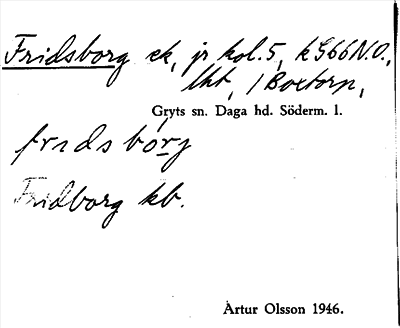 Fridsborg ek, jr kol. 5, k G66 N.O.,
lht, / Boxtorp,
Gryts sn. Daga hd. Söderm. l.
fridsbórj
Fridborg kb.
Artur Olsson 1946.